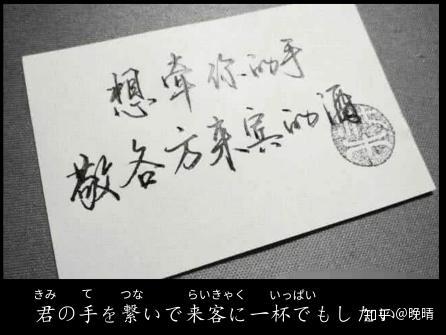 想牵你的手
敬各方来宾的酒
きみ て つな らいきゃく いっぱい
君の手を繋いで来客に一杯でもしたい
知乎@晚晴